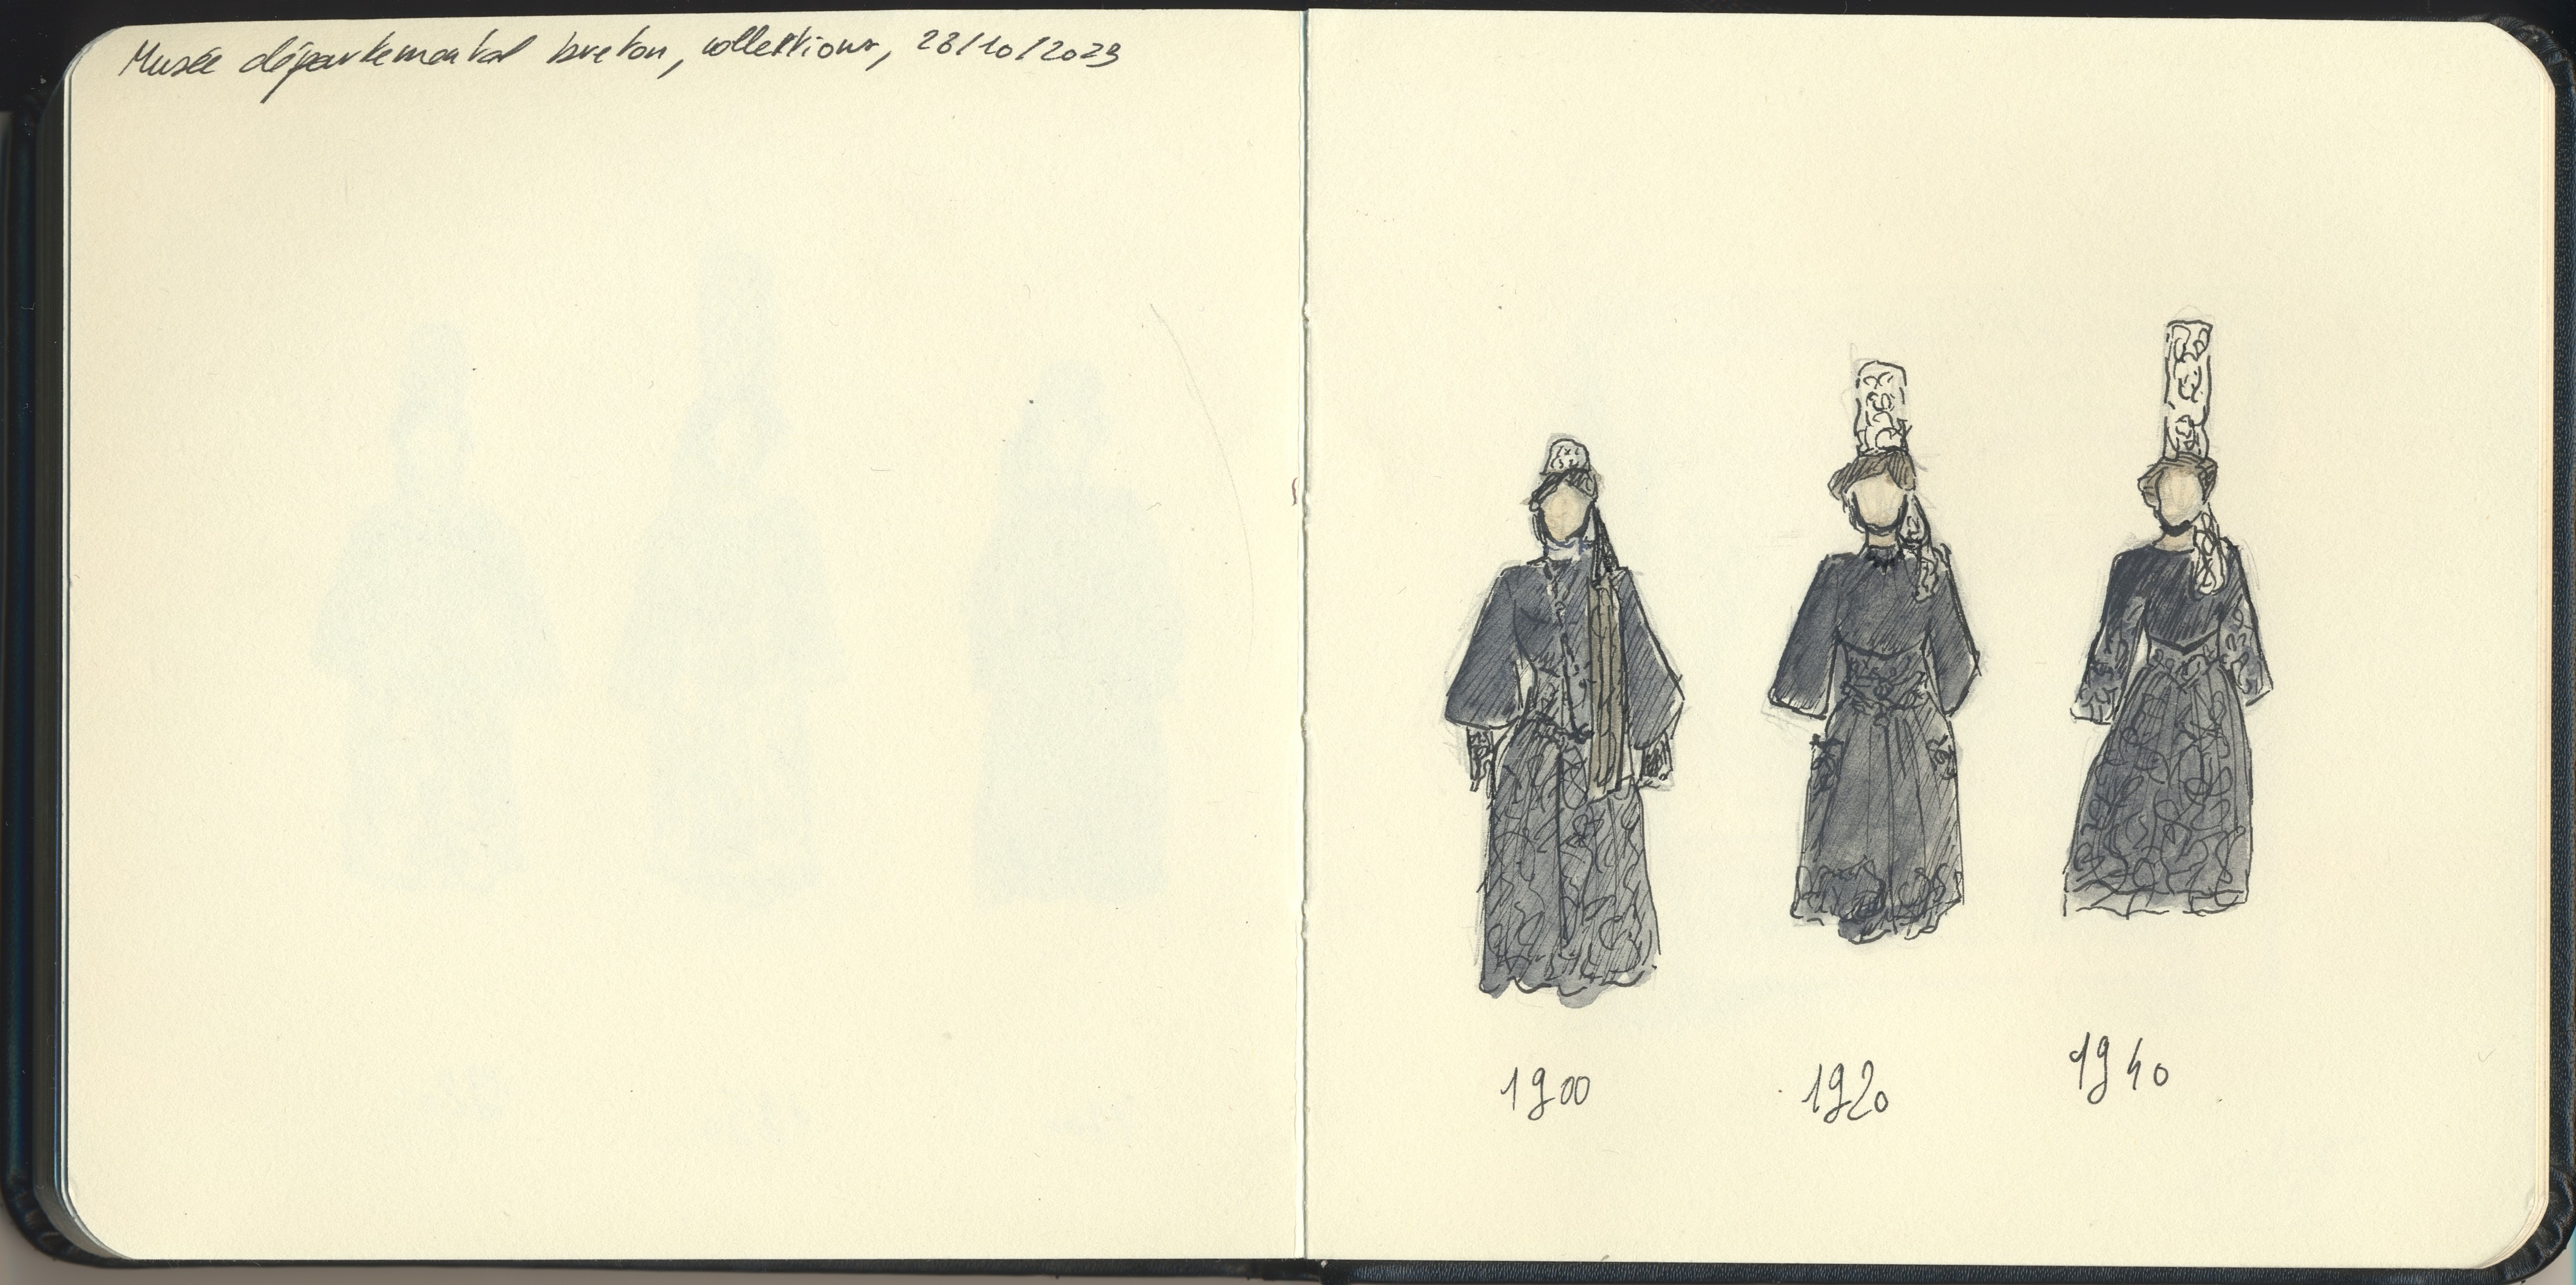 Musée départemental breton, collections, 28/10/2023
1900
1920
1940